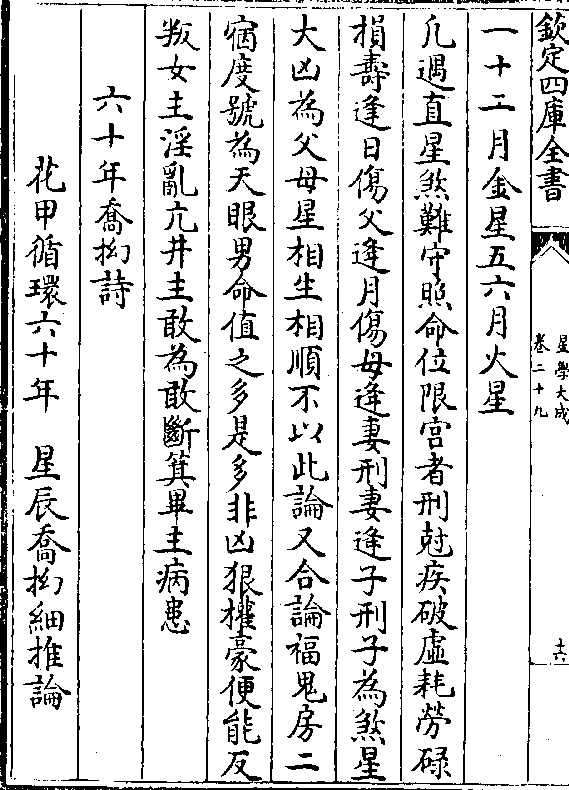 欽定四庫全書
星學大成
卷二十九
十六
一十二月金星五六月火星
凡遇直星煞難守照命位限宫者刑尅疾破虚耗勞碌
損壽逢日傷父逢月傷母逢妻刑妻逢子刑子為煞星
大凶為父母星相生相順不以此論又合論福鬼房二
宿度號為天眼男命值之多是多非凶狠權豪便能反
叛女主淫亂亢井主敢為敢斷箕畢主病患
六十年喬拗詩
花甲循環六十年　星辰喬拗細推論